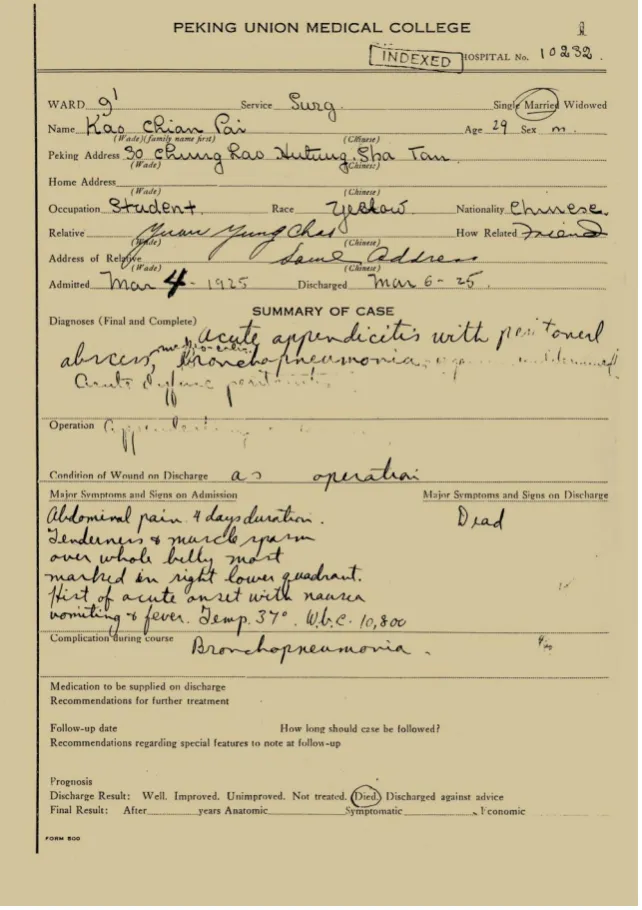 PEKING UNION MEDICAL COLLEGE
INDEXED HOSPITAL No. 10232.
WARD 9' Service Surg. Single Married Widowed
Name Kao Chian Pai Age 29 Sex m.
(Wade)(family name first) (Chinese)
Peking Address 30 Chung Lao Hutung. Sha Tan
(Wade) (Chinese)
Home Address
(Wade) (Chinese)
Occupation Student. Race Yellow Nationality Chinese.
Relative Yuan Yung Chas How Related Friend
(Wade) (Chinese)
Address of Relative Same Address
(Wade) (Chinese)
Admitted Mar 4 - 1925 Discharged Mar 6 - 25.
SUMMARY OF CASE
Diagnoses (Final and Complete) Acute appendicitis with peritoneal
abscess, Bronchopneumonia,
Acute diffuse peritonitis
Operation
Condition of Wound on Discharge as operation
Major Symptoms and Signs on Admission Major Symptoms and Signs on Discharge
Abdominal pain 4 days duration. Dead
Tenderness & muscle spasm
over whole belly most
marked in right lower quadrant.
Hist of acute onset with nausea
vomiting & fever. Temp. 37°. W.b.c. 10,800
Complication during course Bronchopneumonia.
Medication to be supplied on discharge
Recommendations for further treatment
Follow-up date How long should case be followed?
Recommendations regarding special features to note at follow-up
Prognosis
Discharge Result: Well. Improved. Unimproved. Not treated. Died. Discharged against advice
Final Result: After years Anatomic Symptomatic Economic
FORM 500